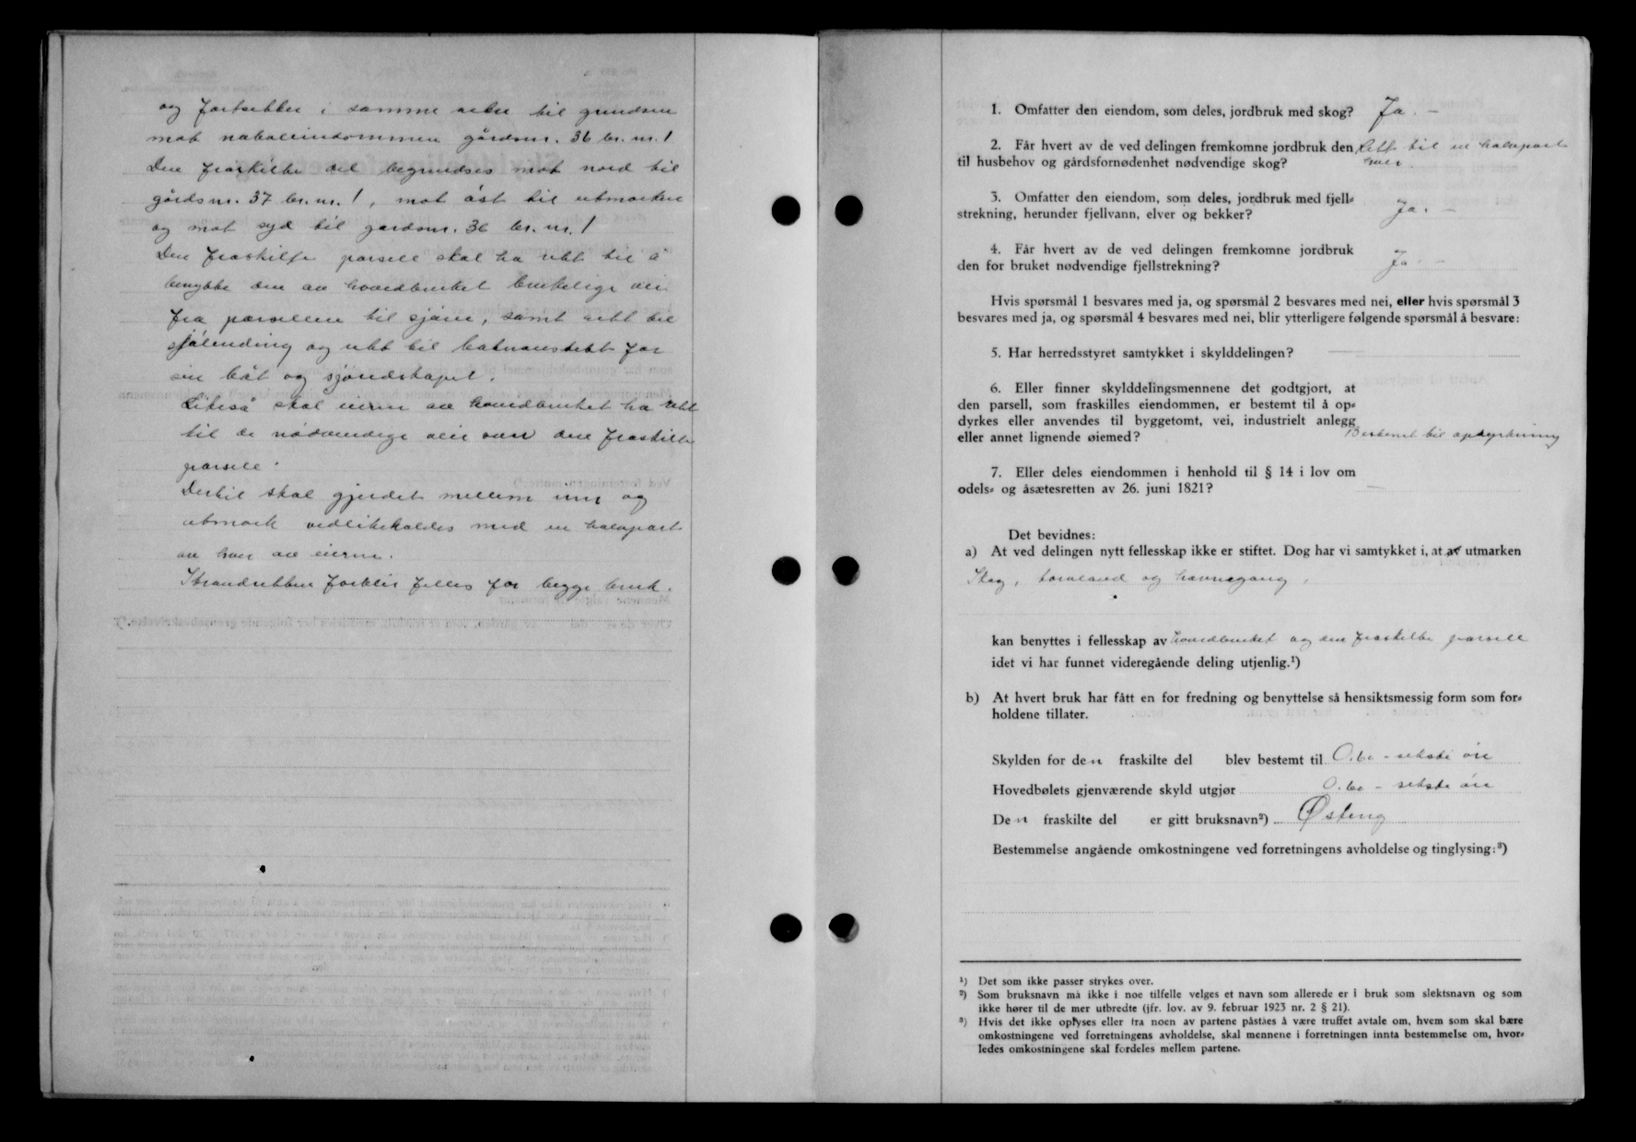 og fortsetter i samme retn til grendsen
mot naboeiendommen gårdsnr. 36 br. nr. 1
Den fraskilte del begrendses mot nord til
gårdsnr. 37 br. nr. 1, mot øst til utmarken
og mot syd til gardsnr. 36 br. nr. 1
Den fraskilte parsell skal ha rett til å
benytte den av hovedbruket brukelige vei
fra parsellen til sjøen, samt rett til
sjølending og rett til båtnaustett for
sin båt og sjøredskaper.
Likeså skal eieren av hovedbruket ha rett
til de nødvendige veie over den fraskilte
parsell.
Dertil skal gjerdet mellem inn og
utmark vedlikeholdes med en halvpart
av hver av eierne.
Strandretten forblir felles for begge bruk.
1. Omfatter den eiendom, som deles, jordbruk med skog? Ja. –
2. Får hvert av de ved delingen fremkomne jordbruk den Rett til en halvpart
til husbehov og gårdsfornødenhet nødvendige skog? hver
3. Omfatter den eiendom, som deles, jordbruk med fjell-
strekning, herunder fjellvann, elver og bekker? Ja. –
4. Får hvert av de ved delingen fremkomne jordbruk
den for bruket nødvendige fjellstrekning? Ja. –
Hvis spørsmål 1 besvares med ja, og spørsmål 2 besvares med nei, eller hvis spørsmål 3
besvares med ja, og spørsmål 4 besvares med nei, blir ytterligere følgende spørsmål å besvare:
5. Har herredsstyret samtykket i skylddelingen? —
6. Eller finner skylddelingsmennene det godtgjort, at
den parsell, som fraskilles eiendommen, er bestemt til å op-
dyrkes eller anvendes til byggetomt, vei, industrielt anlegg
eller annet lignende øiemed? Bestemt til opdyrkning
7. Eller deles eiendommen i henhold til § 14 i lov om
odels- og åsætesretten av 26. juni 1821? —
Det bevidnes:
a) At ved delingen nytt fellesskap ikke er stiftet. Dog har vi samtykket i, at av utmarken
Skog, torvland og havnegang,
kan benyttes i fellesskap av hovedbruket og den fraskilte parsell
idet vi har funnet videregående deling utjenlig.¹)
b) At hvert bruk har fått en for fredning og benyttelse så hensiktsmessig form som for-
holdene tillater.
Skylden for den fraskilte del blev bestemt til 0.60 – seksti øre
Hovedbølets gjenværende skyld utgjør 0.60 – seksti øre
Den fraskilte del er gitt bruksnavn²) Østeng
Bestemmelse angående omkostningene ved forretningens avholdelse og tinglysing:³)
¹) Det som ikke passer strykes over.
²) Som bruksnavn må ikke i noe tilfelle velges et navn som allerede er i bruk som slektsnavn og som
ikke hører til de mer utbredte (jfr. lov. av 9. februar 1923 nr. 2 § 21).
³) Hvis det ikke oplyses eller fra noen av partene påstaes å være truffet avtale om, hvem som skal bære
omkostningene ved forretningens avholdelse, skal mennene i forretningen innta bestemmelse om, hvor-
ledes omkostningene skal fordeles mellem partene.